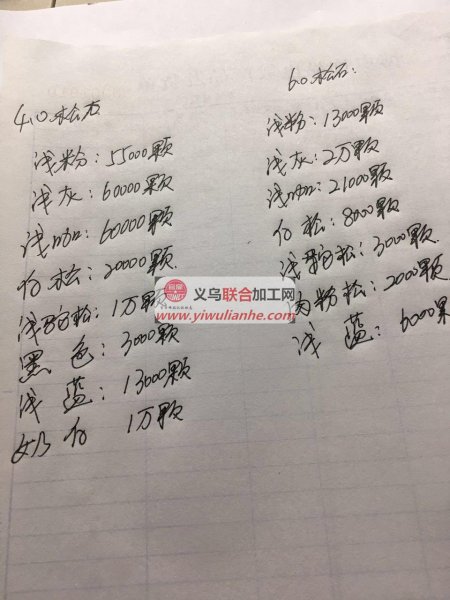 4.0松石
浅粉：55000颗
浅灰：60000颗
浅咖：60000颗
白松：20000颗
浅驼松：1万颗
黑色：3000颗
浅蓝：13000颗
奶白 1万颗
6.0松石：
浅粉：13000颗
浅灰：2万颗
浅咖：21000颗
白松：8000颗
浅驼松：3000颗
肉粉松：2000颗
浅蓝：6000颗
义乌联合加工网
www.yiwulianhe.com